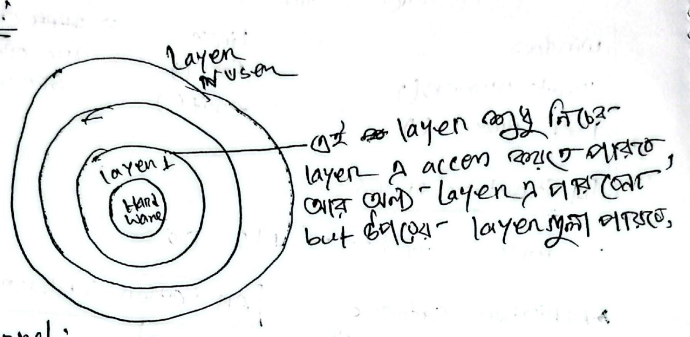 Layer
N user
layer 1
Hard
ware
এই layer শুধু নিচের
layer এ access করতে পারবে,
আর অন্য layer এ পারবেনা
but উপরের layer গুলা পারবে,